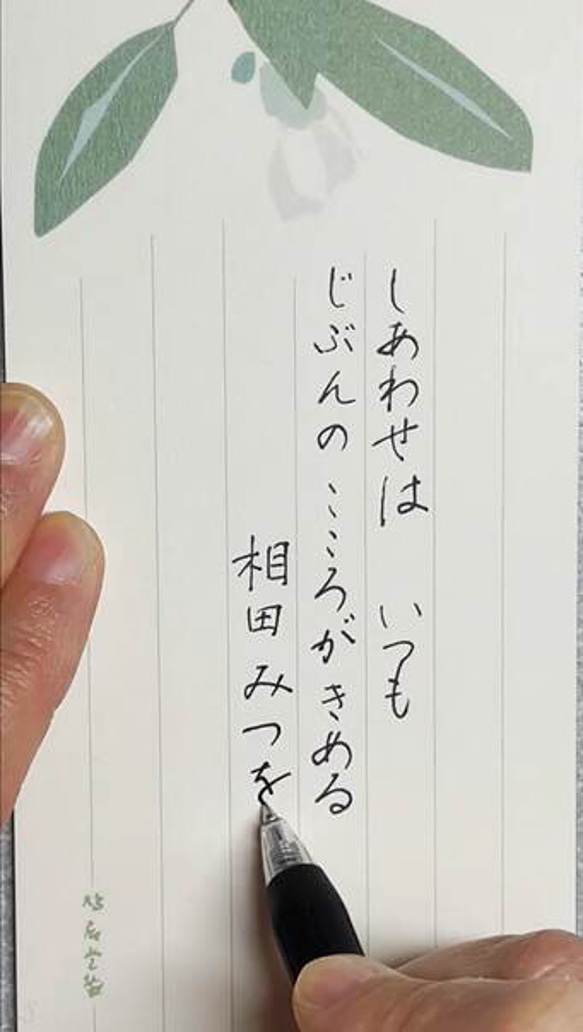 しあわせは いつも
じぶんの こころが きめる
相田みつを
鳩居堂製